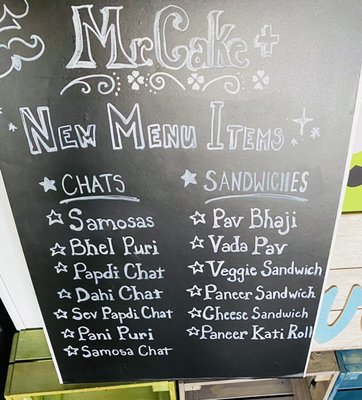 Mr.Cake +
New Menu Items
CHATS
Samosas
Bhel Puri
Papdi Chat
Dahi Chat
Sev Papdi Chat
Pani Puri
Samosa Chat
SANDWICHES
Pav Bhaji
Vada Pav
Veggie Sandwich
Paneer Sandwich
Cheese Sandwich
Paneer Kati Roll